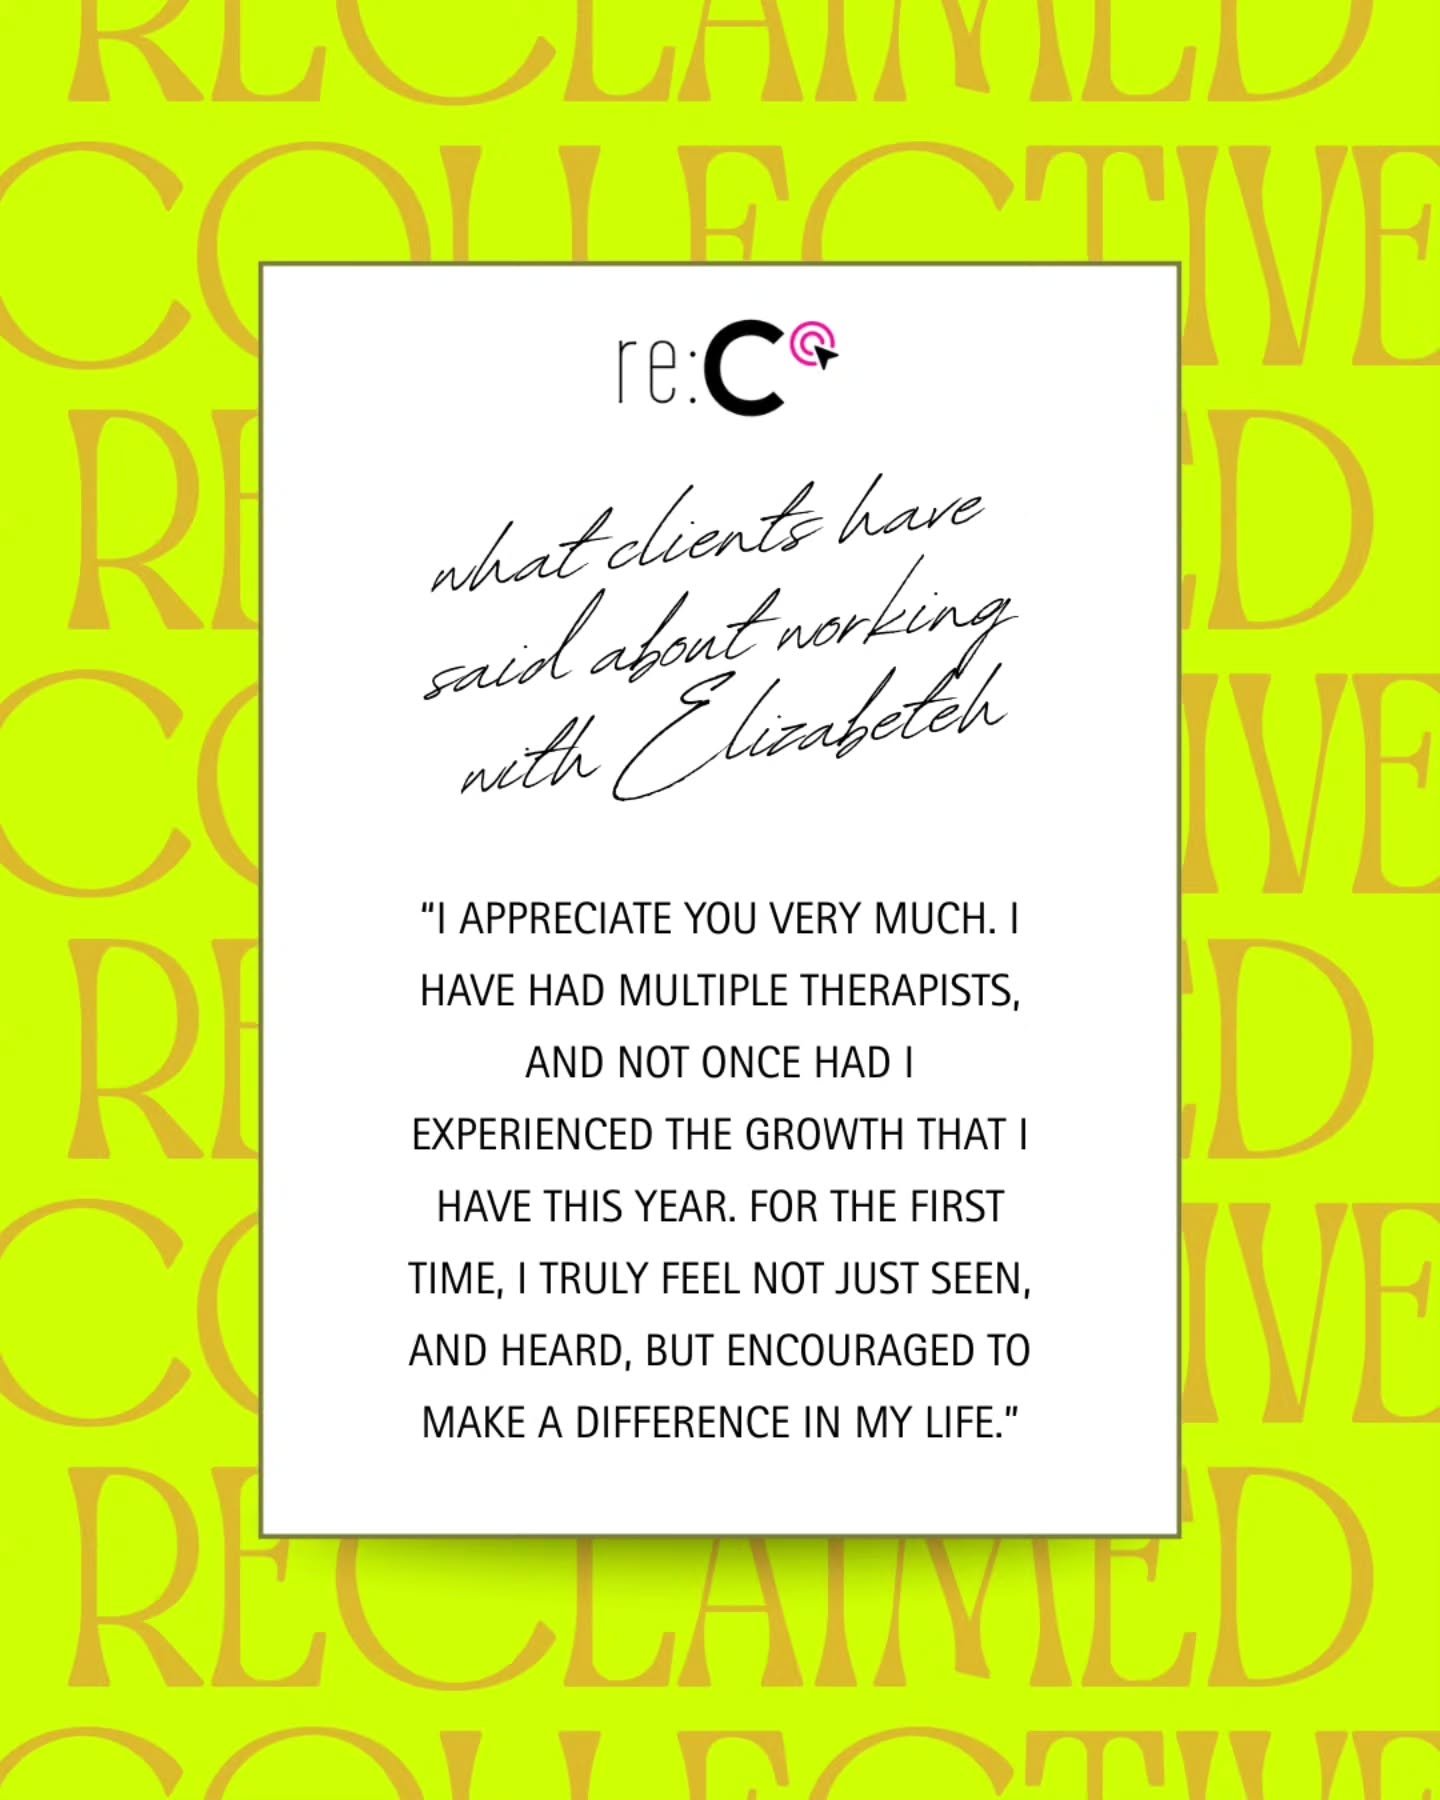 RECLAIMED
COLLECTIVE
re:C
what clients have
said about working
with Elizabeteh
“I APPRECIATE YOU VERY MUCH. I
HAVE HAD MULTIPLE THERAPISTS,
AND NOT ONCE HAD I
EXPERIENCED THE GROWTH THAT I
HAVE THIS YEAR. FOR THE FIRST
TIME, I TRULY FEEL NOT JUST SEEN,
AND HEARD, BUT ENCOURAGED TO
MAKE A DIFFERENCE IN MY LIFE.”
RECLAIMED
COLLECTIVE